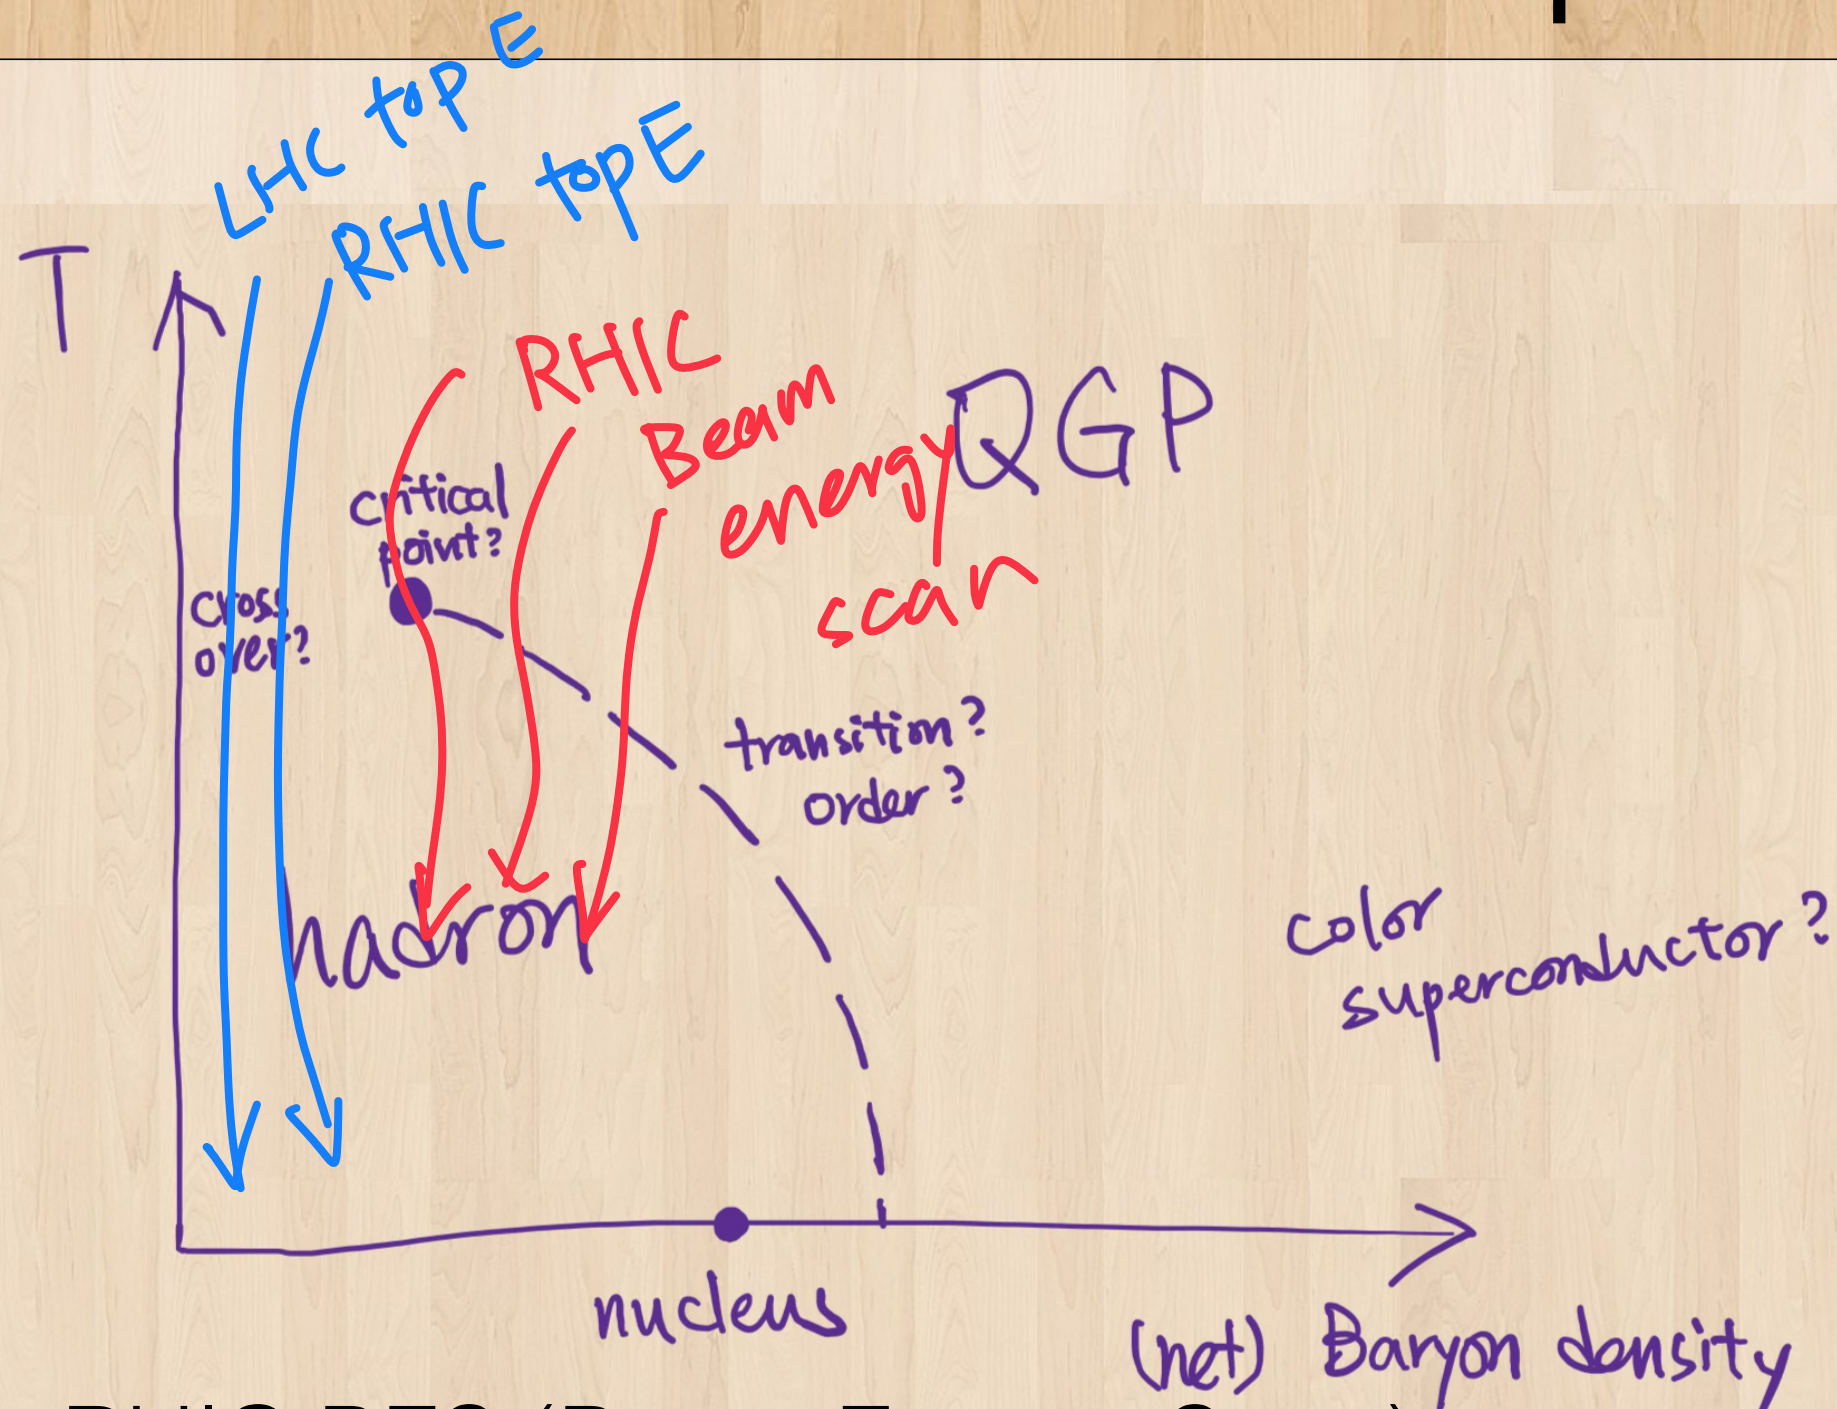 LHC top E
RHIC top E
T
RHIC
Beam
energy
scan
QGP
critical
point?
cross
over?
transition?
order?
hadron
color
superconductor?
nucleus
(net) Baryon density